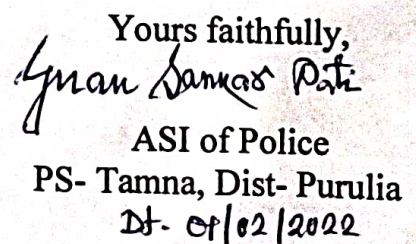 Yours faithfully,
Gnan Sankar Pati
ASI of Police
PS- Tamna, Dist- Purulia
Dt- 08/02/2022